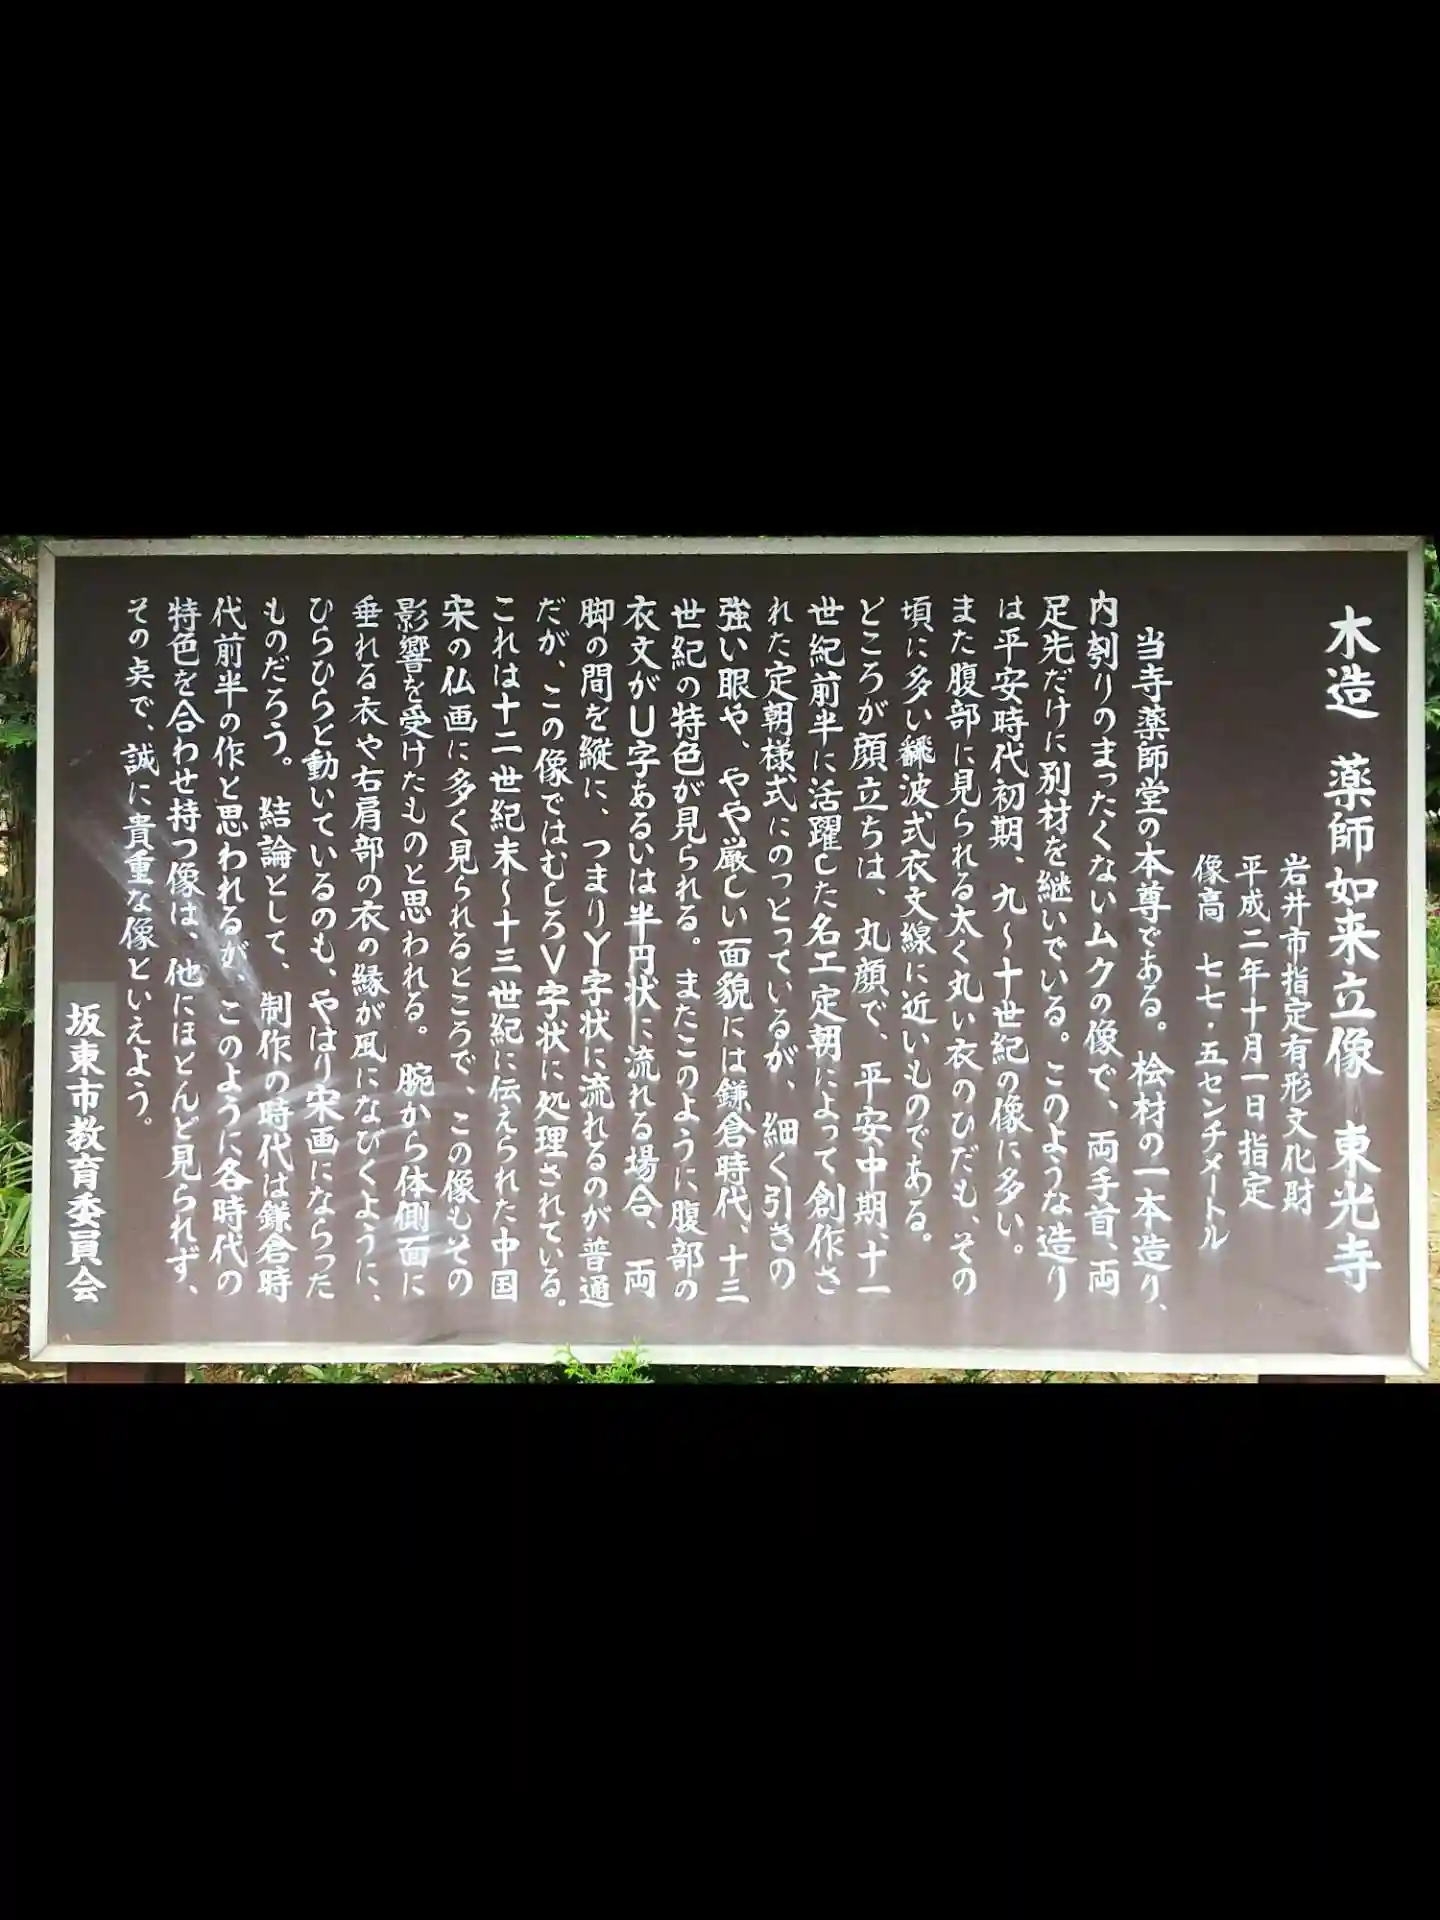 木造 薬師如来立像 東光寺
岩井市指定有形文化財
平成二年十月一日指定
像高 七七・五センチメートル
当寺薬師堂の本尊である。桧材の一本造り、
内刳りのまったくないムクの像で、両手首、両
足先だけに別材を継いでいる。このような造り
は平安時代初期、九～十世紀の像に多い。
また腹部に見られる太く丸い衣のひだも、その
頃に多い飜波式衣文線に近いものである。
ところが顔立ちは、丸顔で、平安中期、十一
世紀前半に活躍した名工定朝によって創作さ
れた定朝様式にのっとっているが、細く引きの
強い眼や、やや厳しい面貌には鎌倉時代、十三
世紀の特色が見られる。またこのように腹部の
衣文がU字あるいは半円状に流れる場合、両
脚の間を縦に、つまりY字状に流れるのが普通
だが、この像ではむしろV字状に処理されている。
これは十二世紀末～十三世紀に伝えられた中国
宋の仏画に多く見られるところで、この像もその
影響を受けたものと思われる。腕から体側面に
垂れる衣や右肩部の衣の縁が風になびくように、
ひらひらと動いているのも、やはり宋画にならった
ものだろう。結論として、制作の時代は鎌倉時
代前半の作と思われるが、このように各時代の
特色を合わせ持つ像は、他にほとんど見られず、
その点で、誠に貴重な像といえよう。
坂東市教育委員会